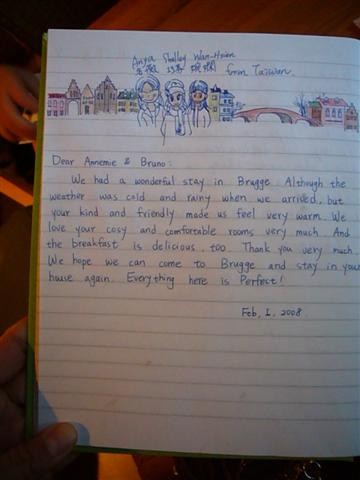 Anya Shelley Wan-Hsien
from Taiwan
Dear Annemie & Bruno:
We had a wonderful stay in Brugge. Although the
weather was cold and rainy when we arrived, but
your kind and friendly made us feel very warm. We
love your cosy and comfortable rooms very much. And
the breakfast is delicious, too. Thank you very much.
We hope we can come to Brugge and stay in your
house again. Everything here is Perfect!
Feb, 1, 2008